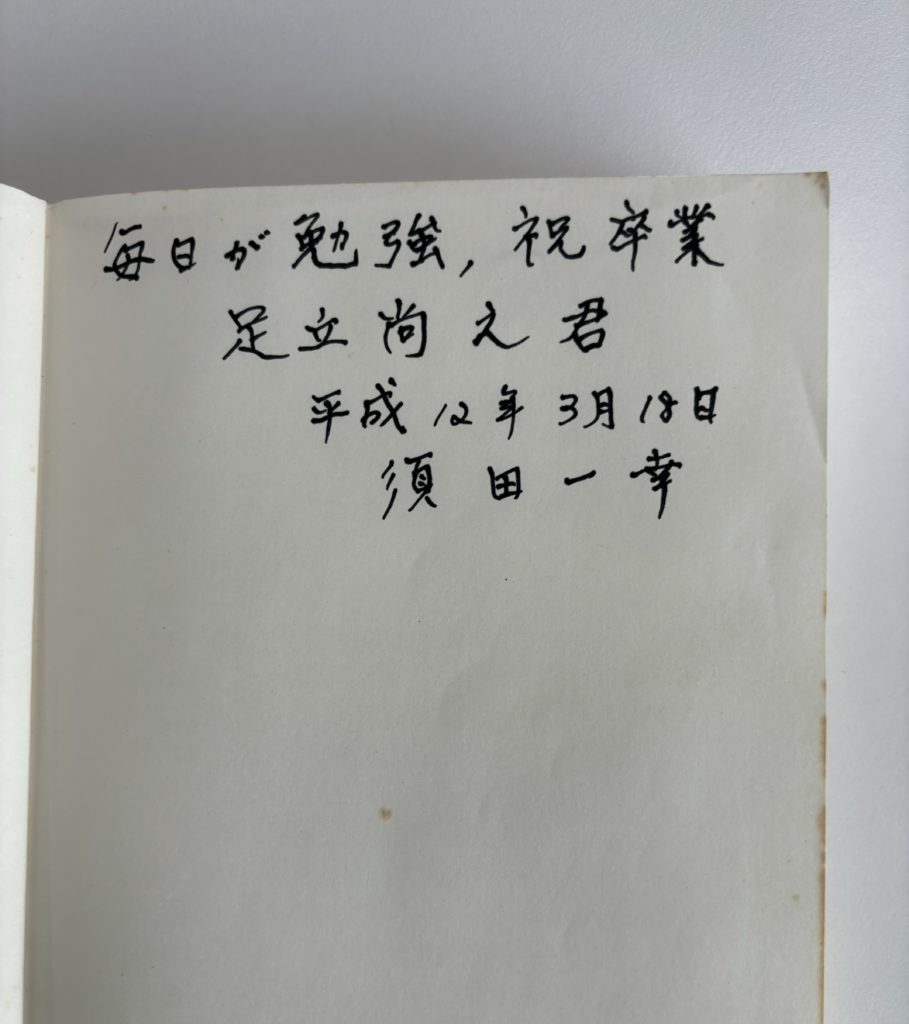 毎日が勉強，祝卒業
足立尚之君
平成12年3月18日
須田一幸